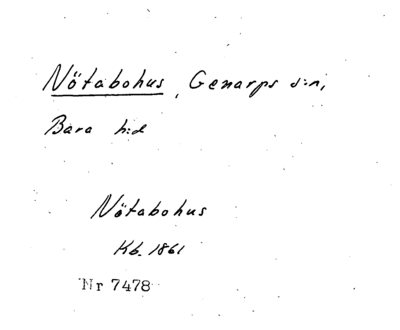 Nötabohus, Genarps s:n,
Bara h:d
Nötabohus
Kb. 1861
Nr 7478